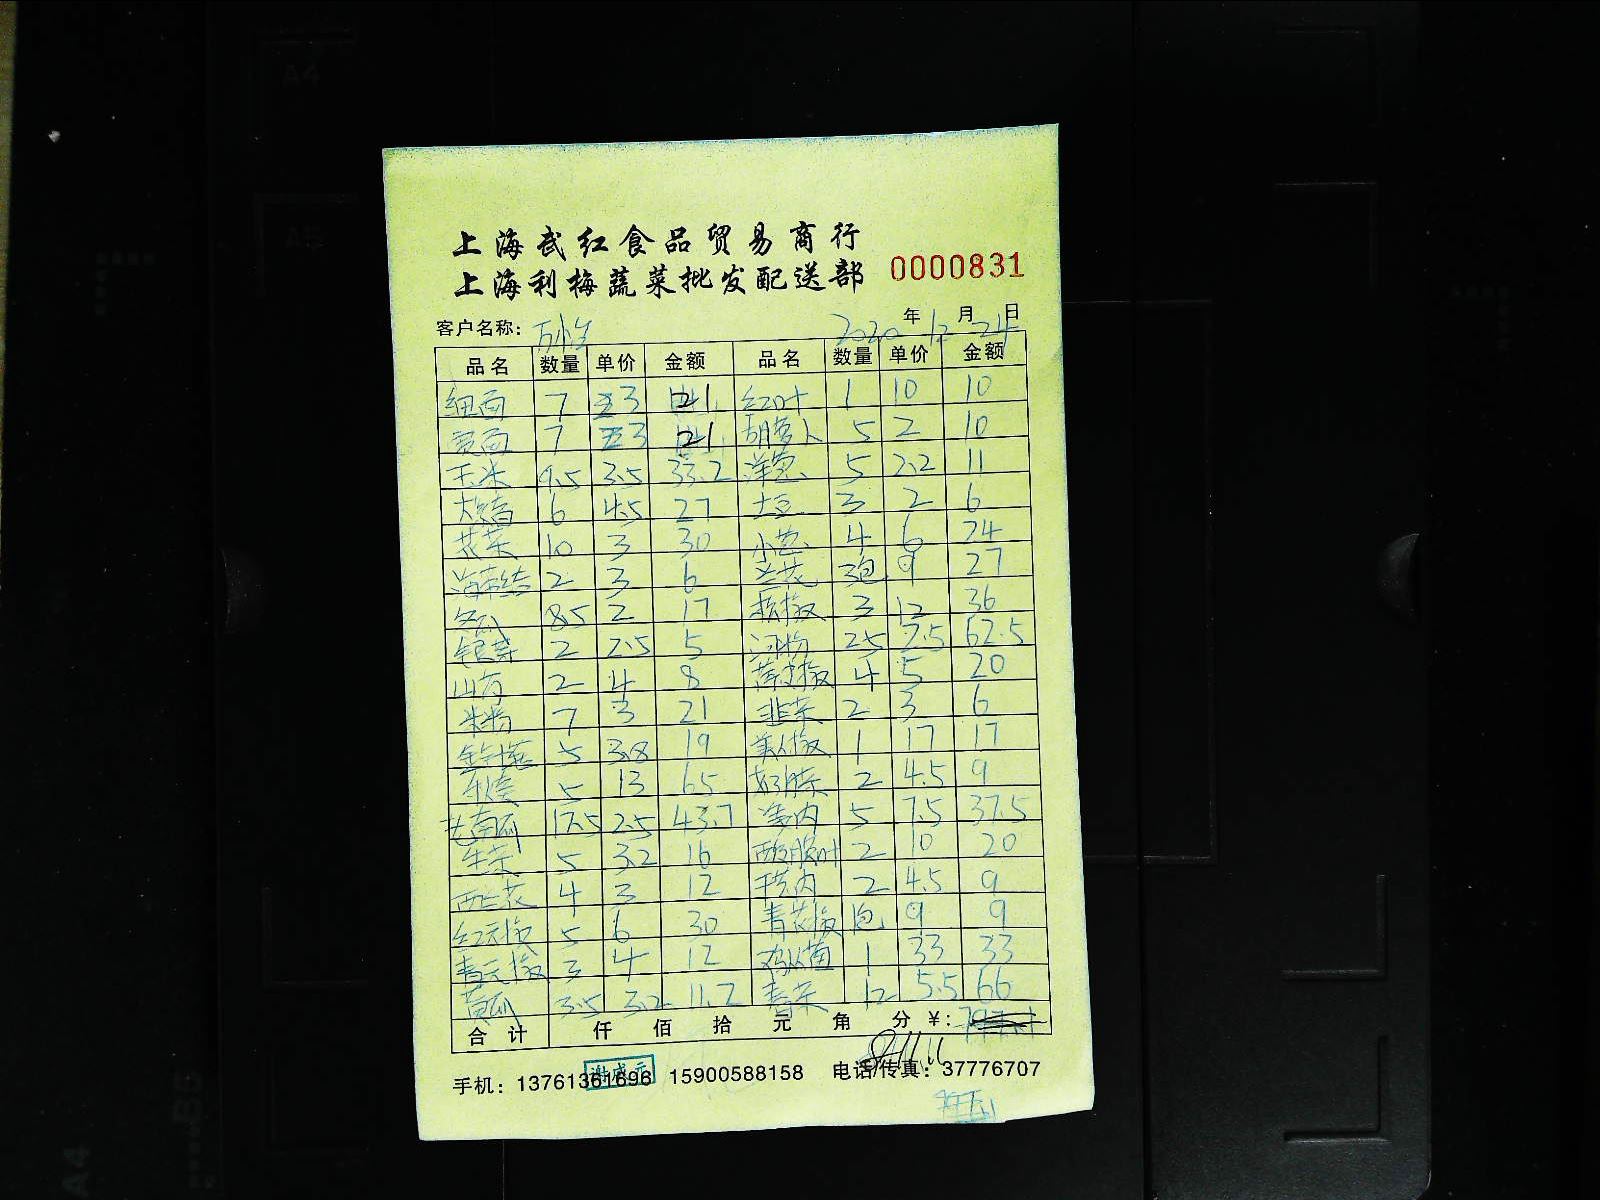 上海武红食品贸易商行
上海利梅蔬菜批发配送部 0000831
客户名称: 2020 年 12 月 24 日
品名 数量 单价 金额 品名 数量 单价 金额
细面 7 3 21 红叶 1 10 10
宽面 7 3 21 胡萝卜 5 2 10
玉米 9.5 3.5 33.2 洋葱 5 2.2 11
6 4.5 27 土豆 3 2 6
花菜 10 3 30 小葱 4 6 24
海带结 2 3 6 兰花 3包 9 27
冬瓜 8.5 2 17 3 12 36
银芽 2 2.5 5 河粉 25 2.5 62.5
山药 2 4 8 薄皮椒 4 5 20
米粉 7 3 21 韭菜 2 3 6
金针菇 5 3.8 19 美人椒 1 17 17
5 13 65 2 4.5 9
老南瓜 17.5 2.5 43.7 5 7.5 37.5
生菜 5 3.2 16 2 10 20
西兰花 4 3 12 2 4.5 9
红元椒 5 6 30 青花椒 1包 9 9
青元椒 3 4 12 鸡从菌 1 33 33
黄瓜 3.5 3.2 11.2 青菜 12 5.5 66
合计 仟 佰 拾 元 角 分 ¥:
811.11
手机: 13761361696 15900588158 电话/传真: 37776707